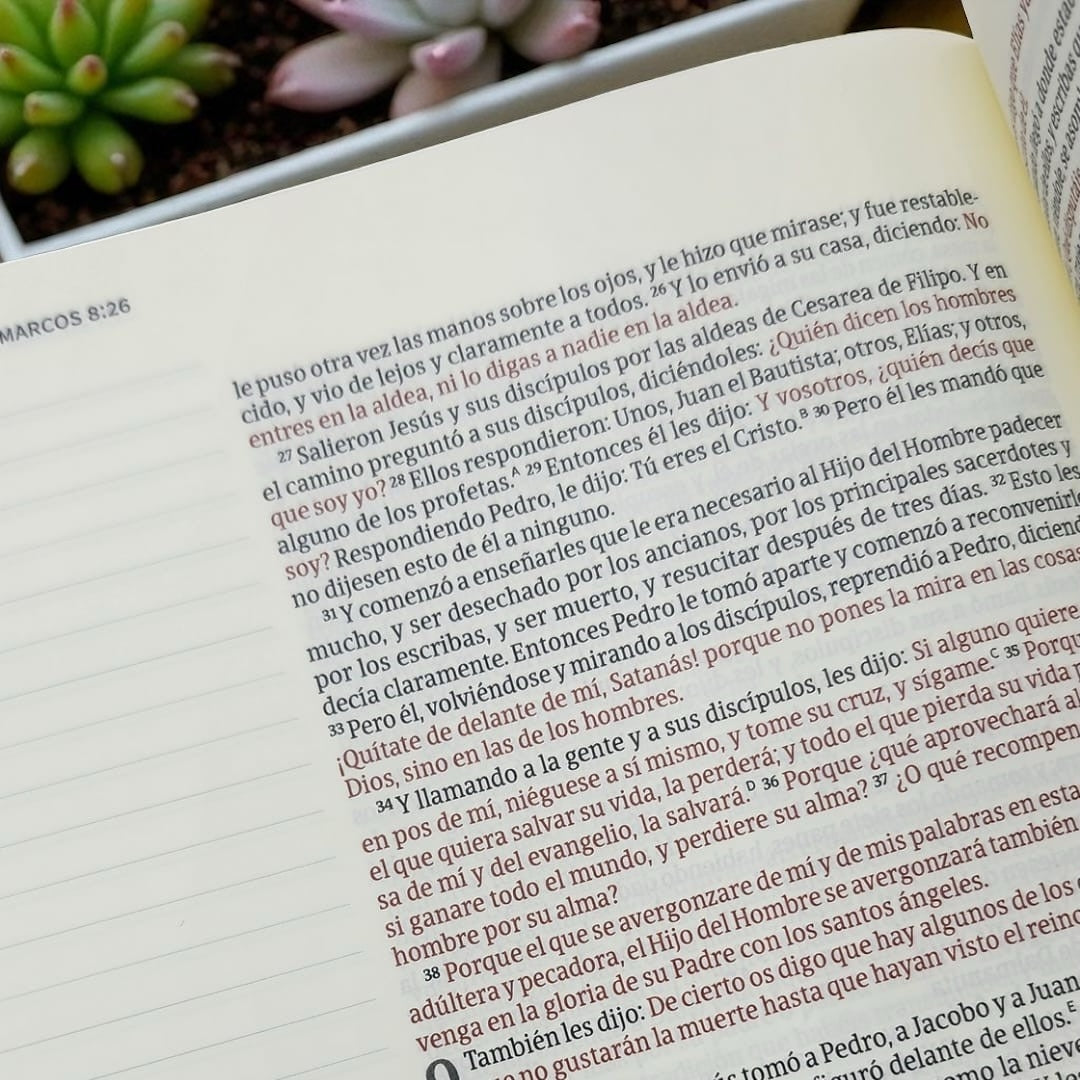 MARCOS 8:26
le puso otra vez las manos sobre los ojos, y le hizo que mirase; y fue restable-
cido, y vio de lejos y claramente a todos. 26 Y lo envió a su casa, diciendo: No
entres en la aldea, ni lo digas a nadie en la aldea.
27 Salieron Jesús y sus discípulos por las aldeas de Cesarea de Filipo. Y en
el camino preguntó a sus discípulos, diciéndoles: ¿Quién dicen los hombres
que soy yo? 28 Ellos respondieron: Unos, Juan el Bautista; otros, Elías; y otros,
alguno de los profetas.A 29 Entonces él les dijo: Y vosotros, ¿quién decís que
soy? Respondiendo Pedro, le dijo: Tú eres el Cristo.B 30 Pero él les mandó que
no dijesen esto de él a ninguno.
31 Y comenzó a enseñarles que le era necesario al Hijo del Hombre padecer
mucho, y ser desechado por los ancianos, por los principales sacerdotes y
por los escribas, y ser muerto, y resucitar después de tres días. 32 Esto les
decía claramente. Entonces Pedro le tomó aparte y comenzó a reconvenirle
33 Pero él, volviéndose y mirando a los discípulos, reprendió a Pedro, diciend
¡Quítate de delante de mí, Satanás! porque no pones la mira en las cosas
Dios, sino en las de los hombres.
34 Y llamando a la gente y a sus discípulos, les dijo: Si alguno quiere
en pos de mí, niéguese a sí mismo, y tome su cruz, y sígame.C 35 Porqu
el que quiera salvar su vida, la perderá; y todo el que pierda su vida
sa de mí y del evangelio, la salvará.D 36 Porque ¿qué aprovechará al
si ganare todo el mundo, y perdiere su alma? 37 ¿O qué recompen
hombre por su alma?
38 Porque el que se avergonzare de mí y de mis palabras en esta
adúltera y pecadora, el Hijo del Hombre se avergonzará también
venga en la gloria de su Padre con los santos ángeles.
También les dijo: De cierto os digo que hay algunos de los
no gustarán la muerte hasta que hayan visto el reino
tomó a Pedro, a Jacobo y a Juan
delante de ellos.E
como la nieve